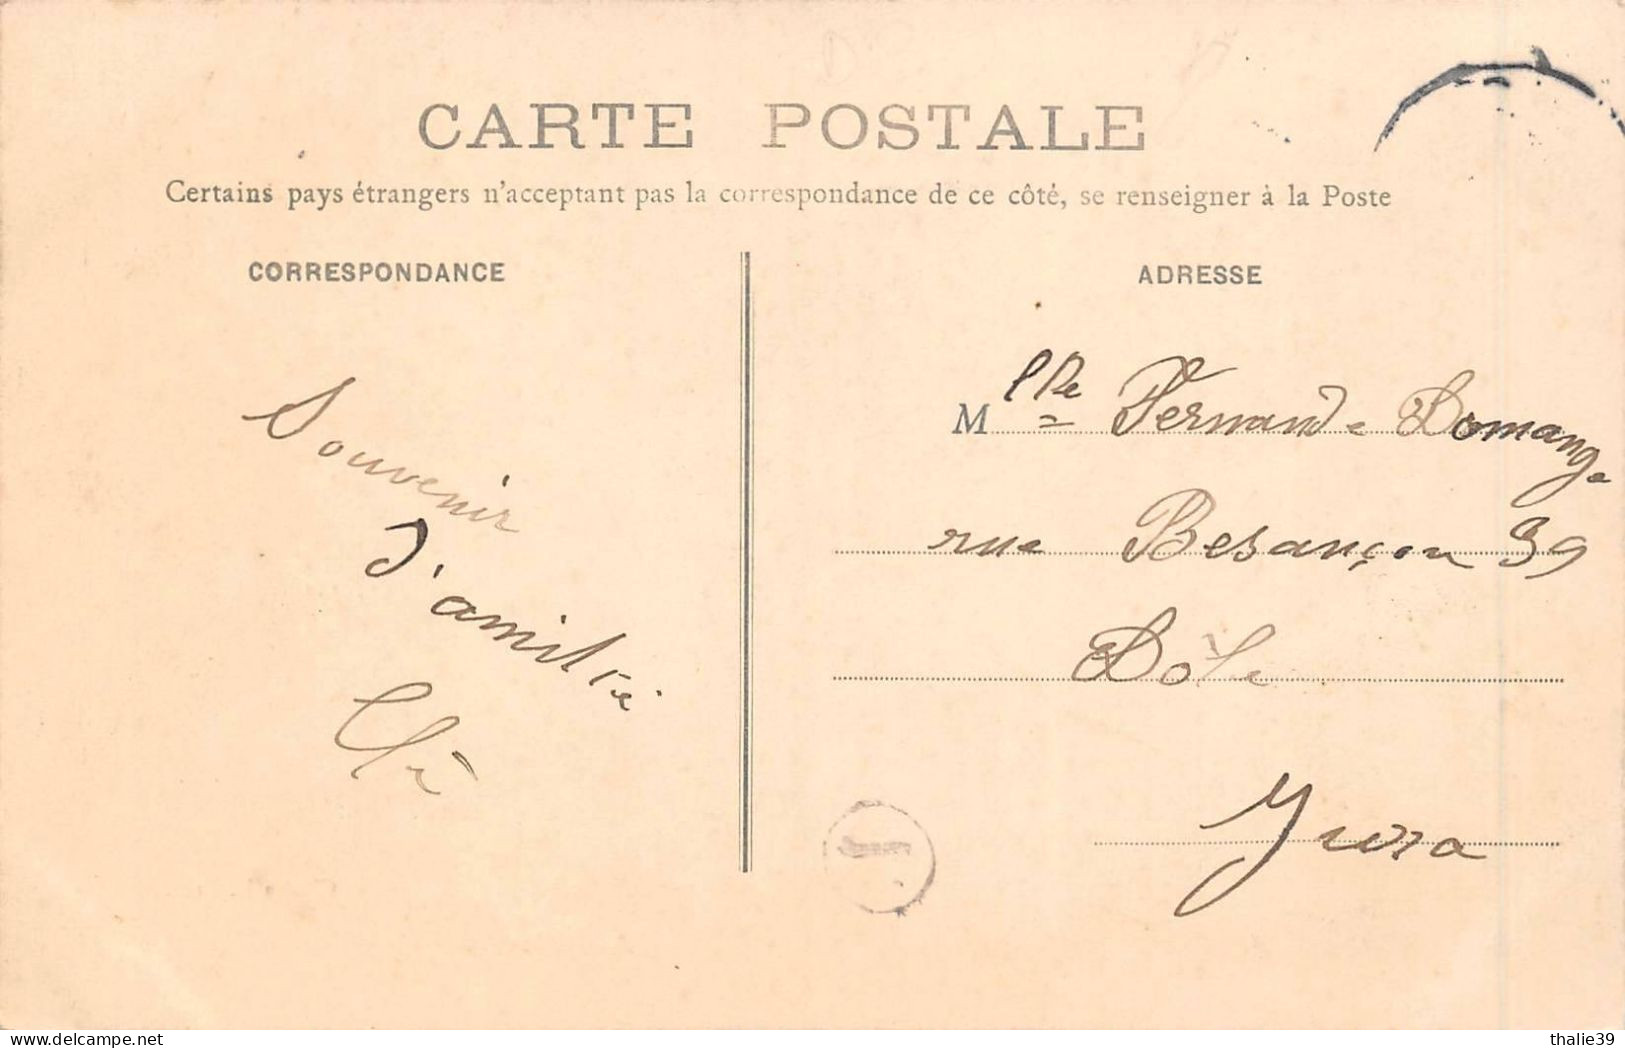 CARTE POSTALE
Certains pays étrangers n'acceptant pas la correspondance de ce côté, se renseigner à la Poste
CORRESPONDANCE
Souvenir
d'amitié
ADRESSE
Mlle Fernande Domange
rue Besançon 39
Dôle
Jura
delcampe.net
thalie39